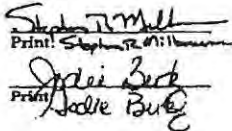 Stephen R Mill
Print: Stephen R Millbourn
Jodie Berk
Print Jodie Berk